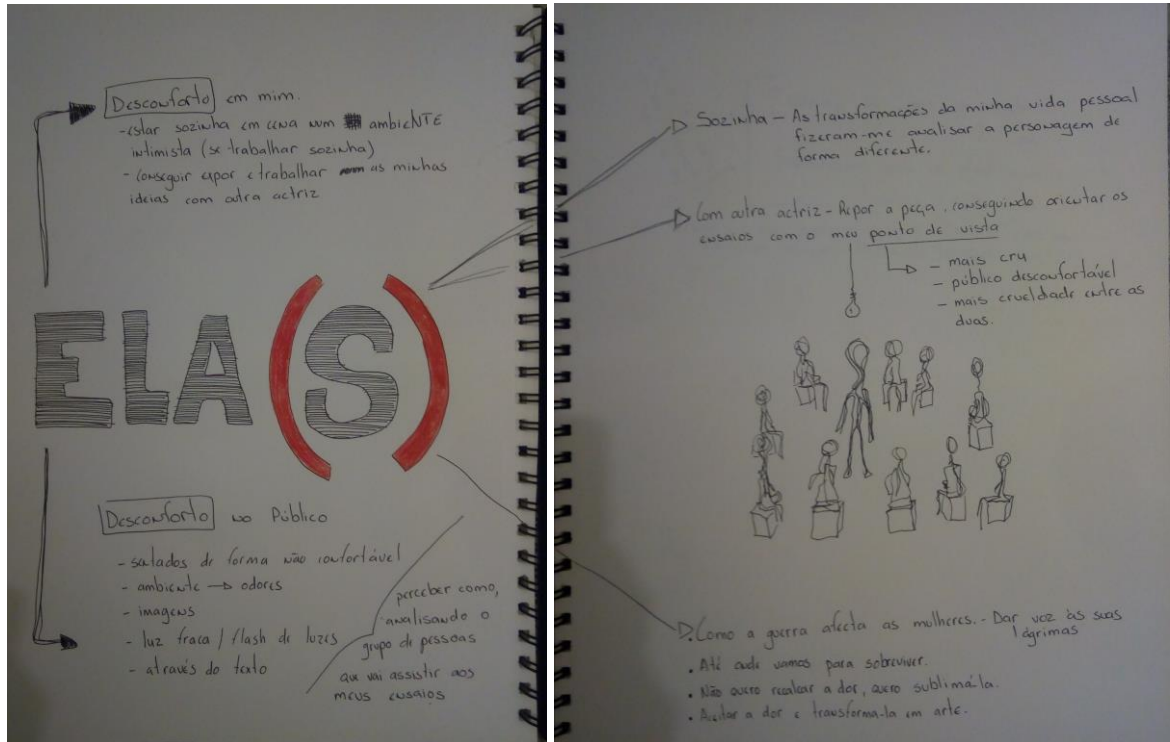 Desconforto em mim.
- estar sozinha em cena num ambieNTE
intimista (se trabalhar sozinha)
- conseguir expor e trabalhar as minhas
ideias com outra actriz
ELA(S)
Desconforto no Público
- sentados de forma não confortável
- ambiente → odores
- imagens
- luz fraca / flash de luzes
- através do texto
perceber como,
analisando o
grupo de pessoas
que vai assistir aos
meus ensaios
Sozinha - As transformações da minha vida pessoal
fizeram-me analisar a personagem de
forma diferente.
Com outra actriz - Repor a peça, conseguindo orientar os
ensaios com o meu ponto de vista
- mais cru
- público desconfortável
- mais crueldade entre as
duas.
• Como a guerra afecta as mulheres. - Dar voz às suas
lágrimas
• Até onde vamos para sobreviver.
• Não quero realçar a dor, quero sublimá-la.
• Aceitar a dor e transforma-la em arte.